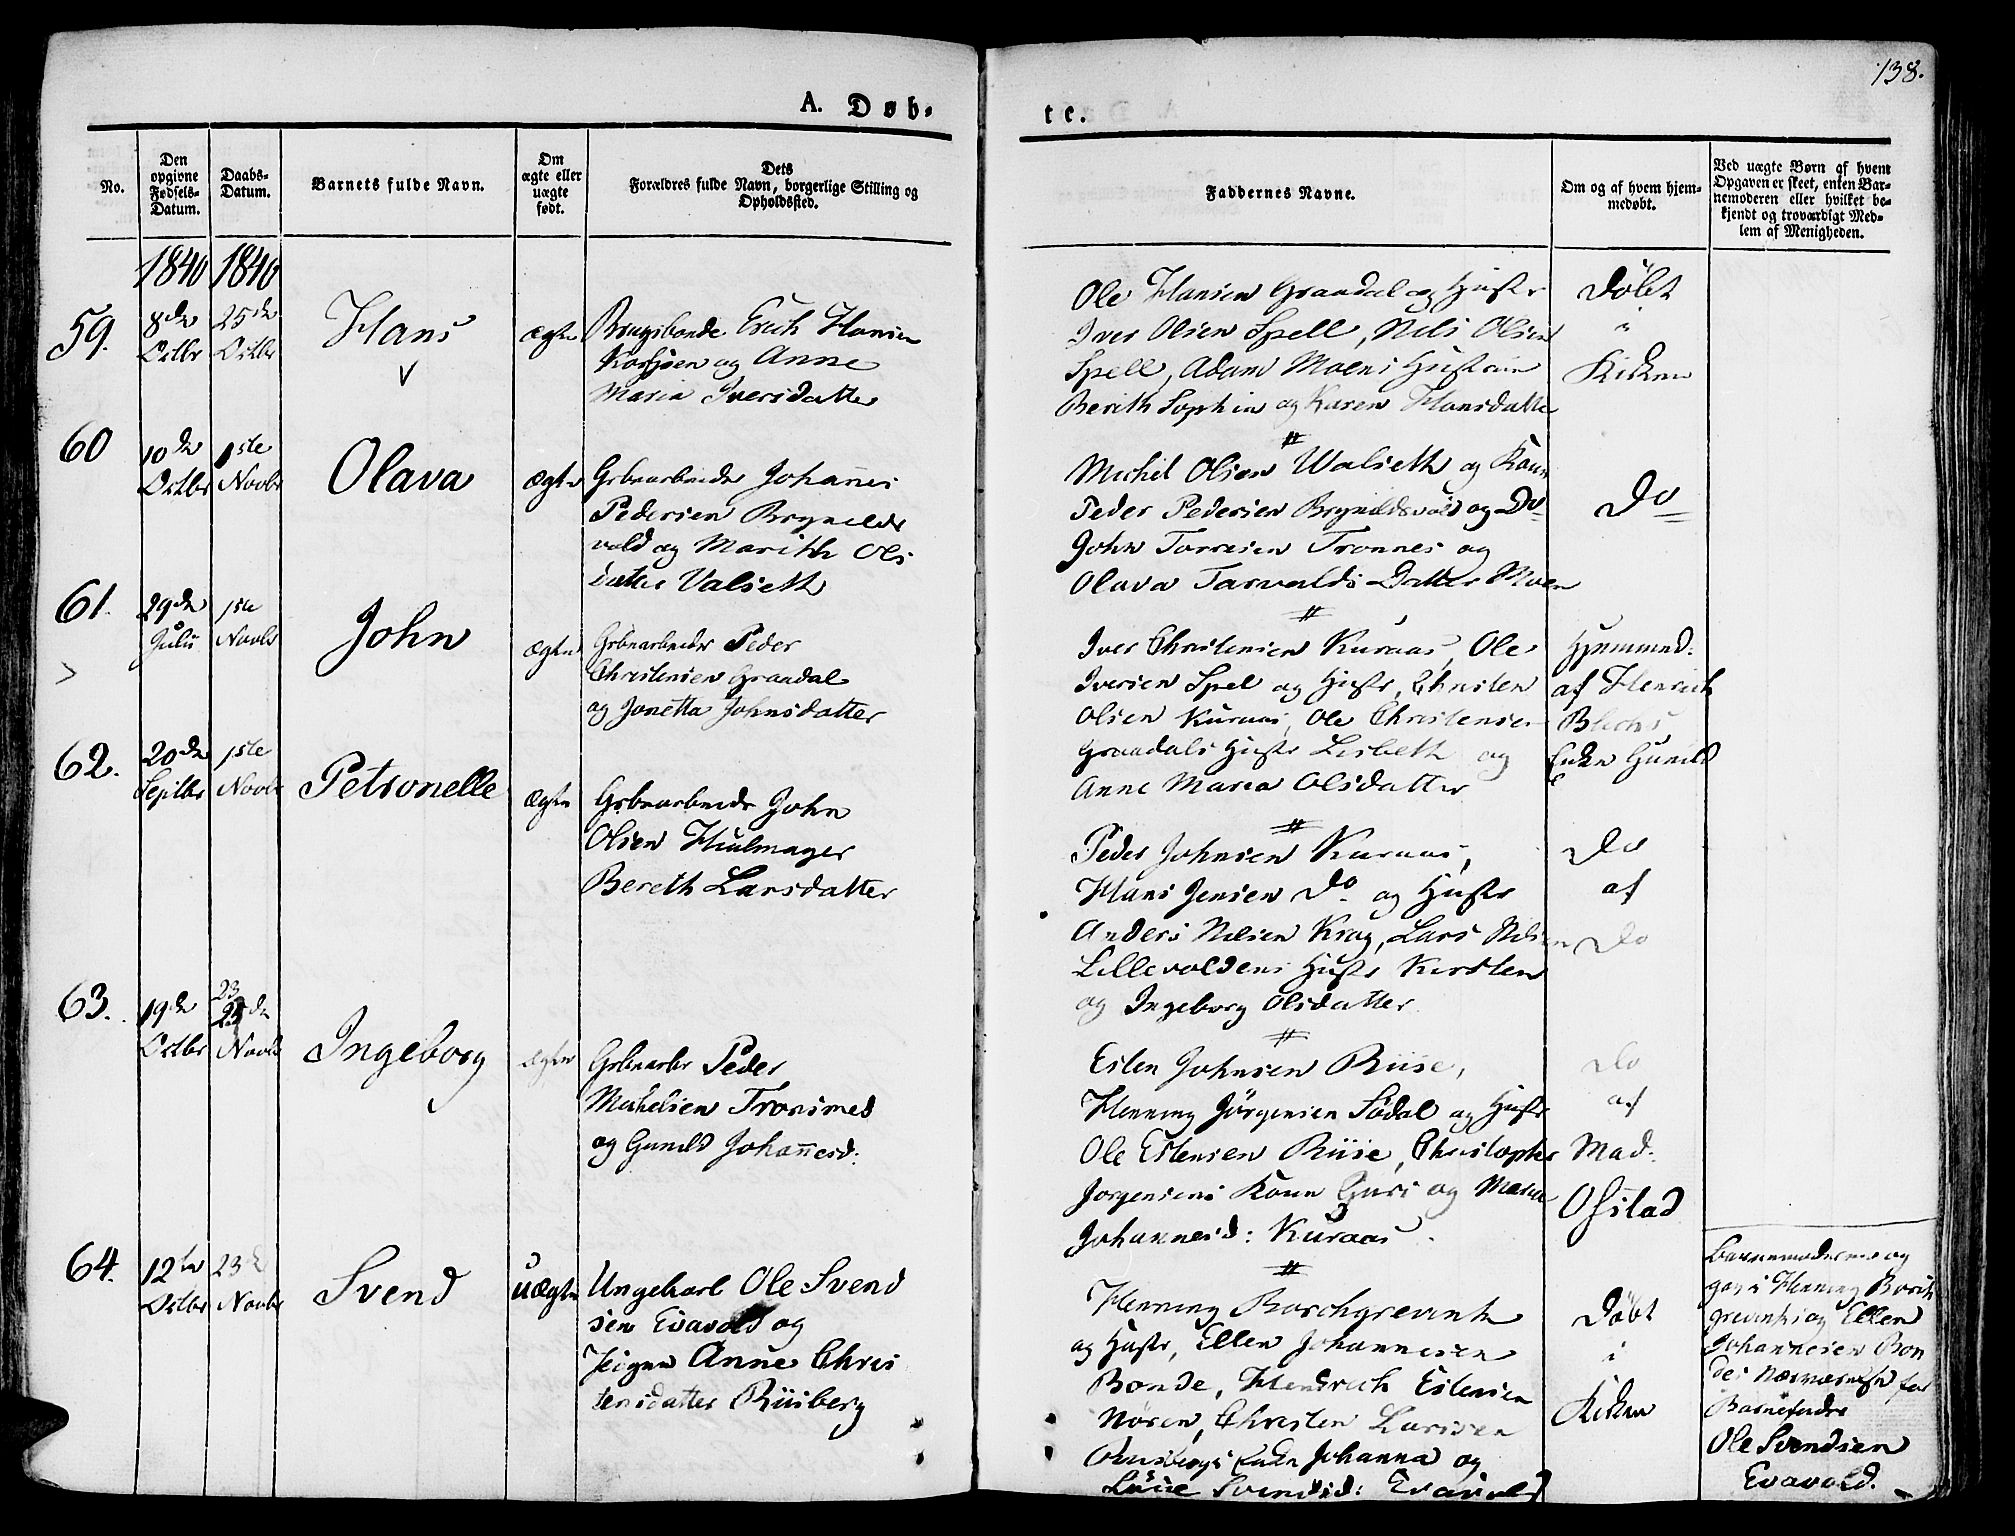 138.
A. Døb-
te.
No.
Den opgivne Fødsels-Datum.
Daabs-Datum.
Barnets fulde Navn.
Om ægte eller uægte født.
Dets
Forældres fulde Navn, borgerlige Stilling og
Opholdssted.
Faddernes Navne.
Om og af hvem hjem-
medøbt.
Ved uægte Børn af hvem
Opgaven er skeet, enten Bar-
nemoderen eller hvilket be-
kjendt og troværdigt Med-
lem af Menigheden.
1840 1840
59.
8de Octbr
25de Octbr
Hans
ægte
Brugsbonde Erich Hansen
og Anne
Maria Iversdatter
Ole Hansen Graadal og Hustr
Iver Olsen Spell, Nils Olsen
Spell, Adam Moens Hustrue
Berith Sophia og Karen Hansdatter
Döbt
i
Kirken
60
10de Octbr
1ste Novbr
Olava
Ægte
Grbearbeider Johannes
Pedersen Brynilds
vold og Marith Ols
datter Valseth
Michel Olsen Walseth og Kone
Peder Pedersen Brynildsvold og Do
John Torresen Tronnes og
Olava Tarvalds Datter Moen
Do
61.
29de Julii
1ste Novbr
John
Ægte
Grbearbeider Peder
Christensen Graadal
og Jonetta Johnsdatter
Iver Christensen Kuraas, Ole
Iversen Spel og Hustr, Christen
Olsen Kuraas, Ole Christensen
Graadals Hustr Lisbeth og
Anne Maria Olsdatter
Hjemmed:
af Henrich
Blechs
Enke Gunild
62.
20de Septbr
1ste Novbr
Petronelle
Ægte
Grbearbeider John
Olsen Hiulmager
Bereth Larsdatter
Peder Johnsen Kuraas,
Hans Jensen Do og Hustr
Anders Nilsen Krog, Lars Nilsen
Lillevoldens Hustr Kirsten
og Ingeborg Olsdatter
Do
af
Do
63.
19de Octbr
23de Novbr
Ingeborg
ægte
Grbearbr Peder
Michelsen Tronsmed
og Gunild Johannesd:
Esten Johnsen Riise,
Henning Jörgensen Södal og Hustr
Ole Estensen Riise, Christopher
Jorgensens Kone Guri og Maria
Johannesd: Kuraas
Do
af
Mad.
Ofstad
64.
12te Octbr
23de Novbr
Svend
uægte
Ungekarl Ole Svend
sen Evavold og
Anne Chris
tensdatter Riisberg
Henning Borchgrevink
og Hustr, Ellen Johannesen
Bonde, Hendrich Estensen
Nören, Christen Larsen
Enke Johanna og
Svendsd: Evavold
Döbt
i
Kirken
Barnemoderens og
Henning Borch
grevinks og Ellen
Johannesen Bon
des Nærværelse for
Barnefader
Ole Svendsen
Evavold.